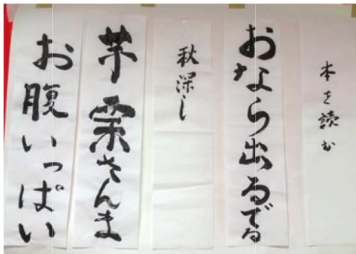 本を読む
おなら出るでる
秋深し
芋栗さんま
お腹いっぱい